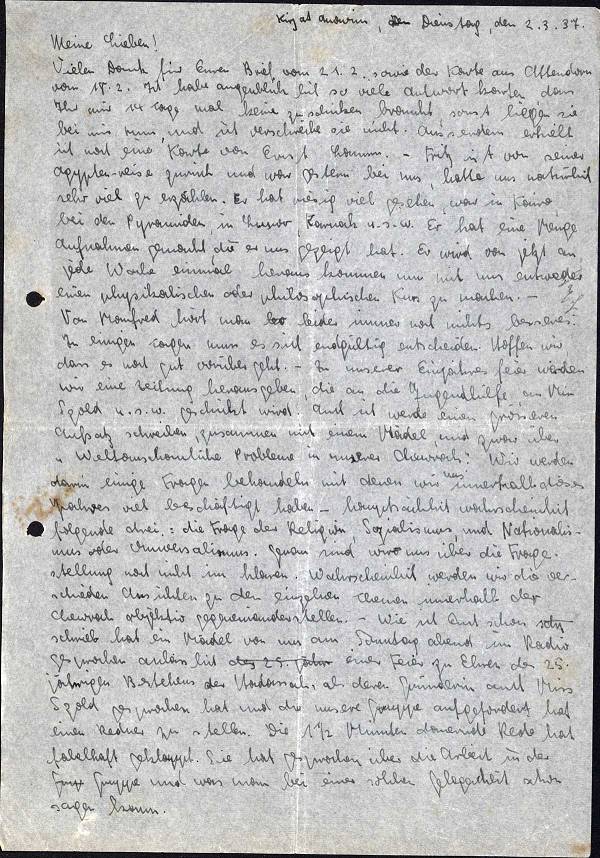 Kirjat Anavim, den Dienstag, den 2.3.37.
Meine Lieben!
Vielen Dank für Euren Brief vom 21.2. sowie der Karte aus Attendorn
vom 18.2. Ich habe augenblicklich so viele Antwortkarten, dass
Ihr mir 14 Tage mal keine zu schicken braucht, sonst liegen sie
bei mir rum, und ich verschreibe sie nicht. Ausserdem erhielt
ich noch eine Karte von Ernst. – Fritz ist von seiner
Ägypten-reise zurück und war gestern bei uns, hatte uns natürlich
sehr viel zu erzählen. Er hat riesig viel gesehen, war in Kairo,
bei den Pyramiden, in Luxor Karnack u.s.w. Er hat eine Menge
Aufnahmen gemacht, die er uns gezeigt hat. Er wird von jetzt an
jede Woche einmal heraus kommen um mit uns entweder
einen physikalischen oder philosophischen Kurs zu machen. –
Von Manfred hört man leider immer noch nichts besseres.
In einigen Tagen muss es sich endgültig entscheiden. Hoffen wir
dass es noch gut vorüber geht. – Zu unserer Einjahres feier werden
wir eine Zeitung herausgeben, die an die Jugendhilfe, an Miss
Szold u.s.w. geschickt wird. Auch ich werde einen grösseren
Aufsatz schreiben, zusammen mit einem Mädel und zwar über
"Weltanschauliche Probleme in unserer Chewrah". Wir werden
darin einige Fragen behandeln mit denen wir uns innerhalb dieses
Jahres viel beschäftigt haben – hauptsächlich wahrscheinlich
folgende drei: die Frage der Religion, Sozialismus, und Nationalis-
mus oder Universalismus. Genau sind wir uns über die Frage-
stellung noch nicht im klaren. Wahrscheinlich werden wir die ver-
schieden Ansichten zu den einzelnen Themen innerhalb der
Chewrah objektiv gegeneinanderstellen. – Wie ich Euch schon
schrieb hat ein Mädel von uns am Sonntag abend im Radio
gesprochen anlässlich einer Feier zu Ehren des 25.
jährigen Bestehens der Hadassah, als deren Gründerin auch Miss
Szold gesprochen hat und die unsere Gruppe aufgefordert hat
einen Redner zu stellen. Die 1 1/2 Minuten dauernde Rede hat
fabelhaft geklappt. Sie hat gesprochen über die Arbeit in der
Gruppe und was man bei einer solchen Gelegenheit schon
sagen kann.